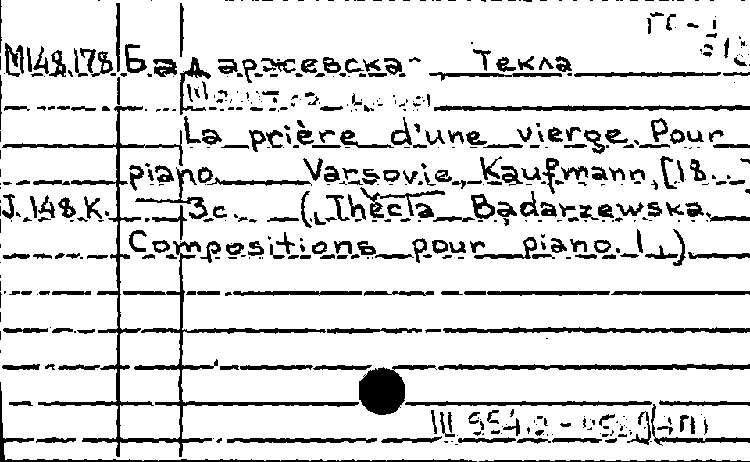 М148.178 Бадаржевска- Текла
La prière d'une vierge. Pour
piano. Varsovie, Kaufmann, [18...]
J.148.K. 3c. (Thècla Bądarzewska.
Compositions pour piano. 1.)